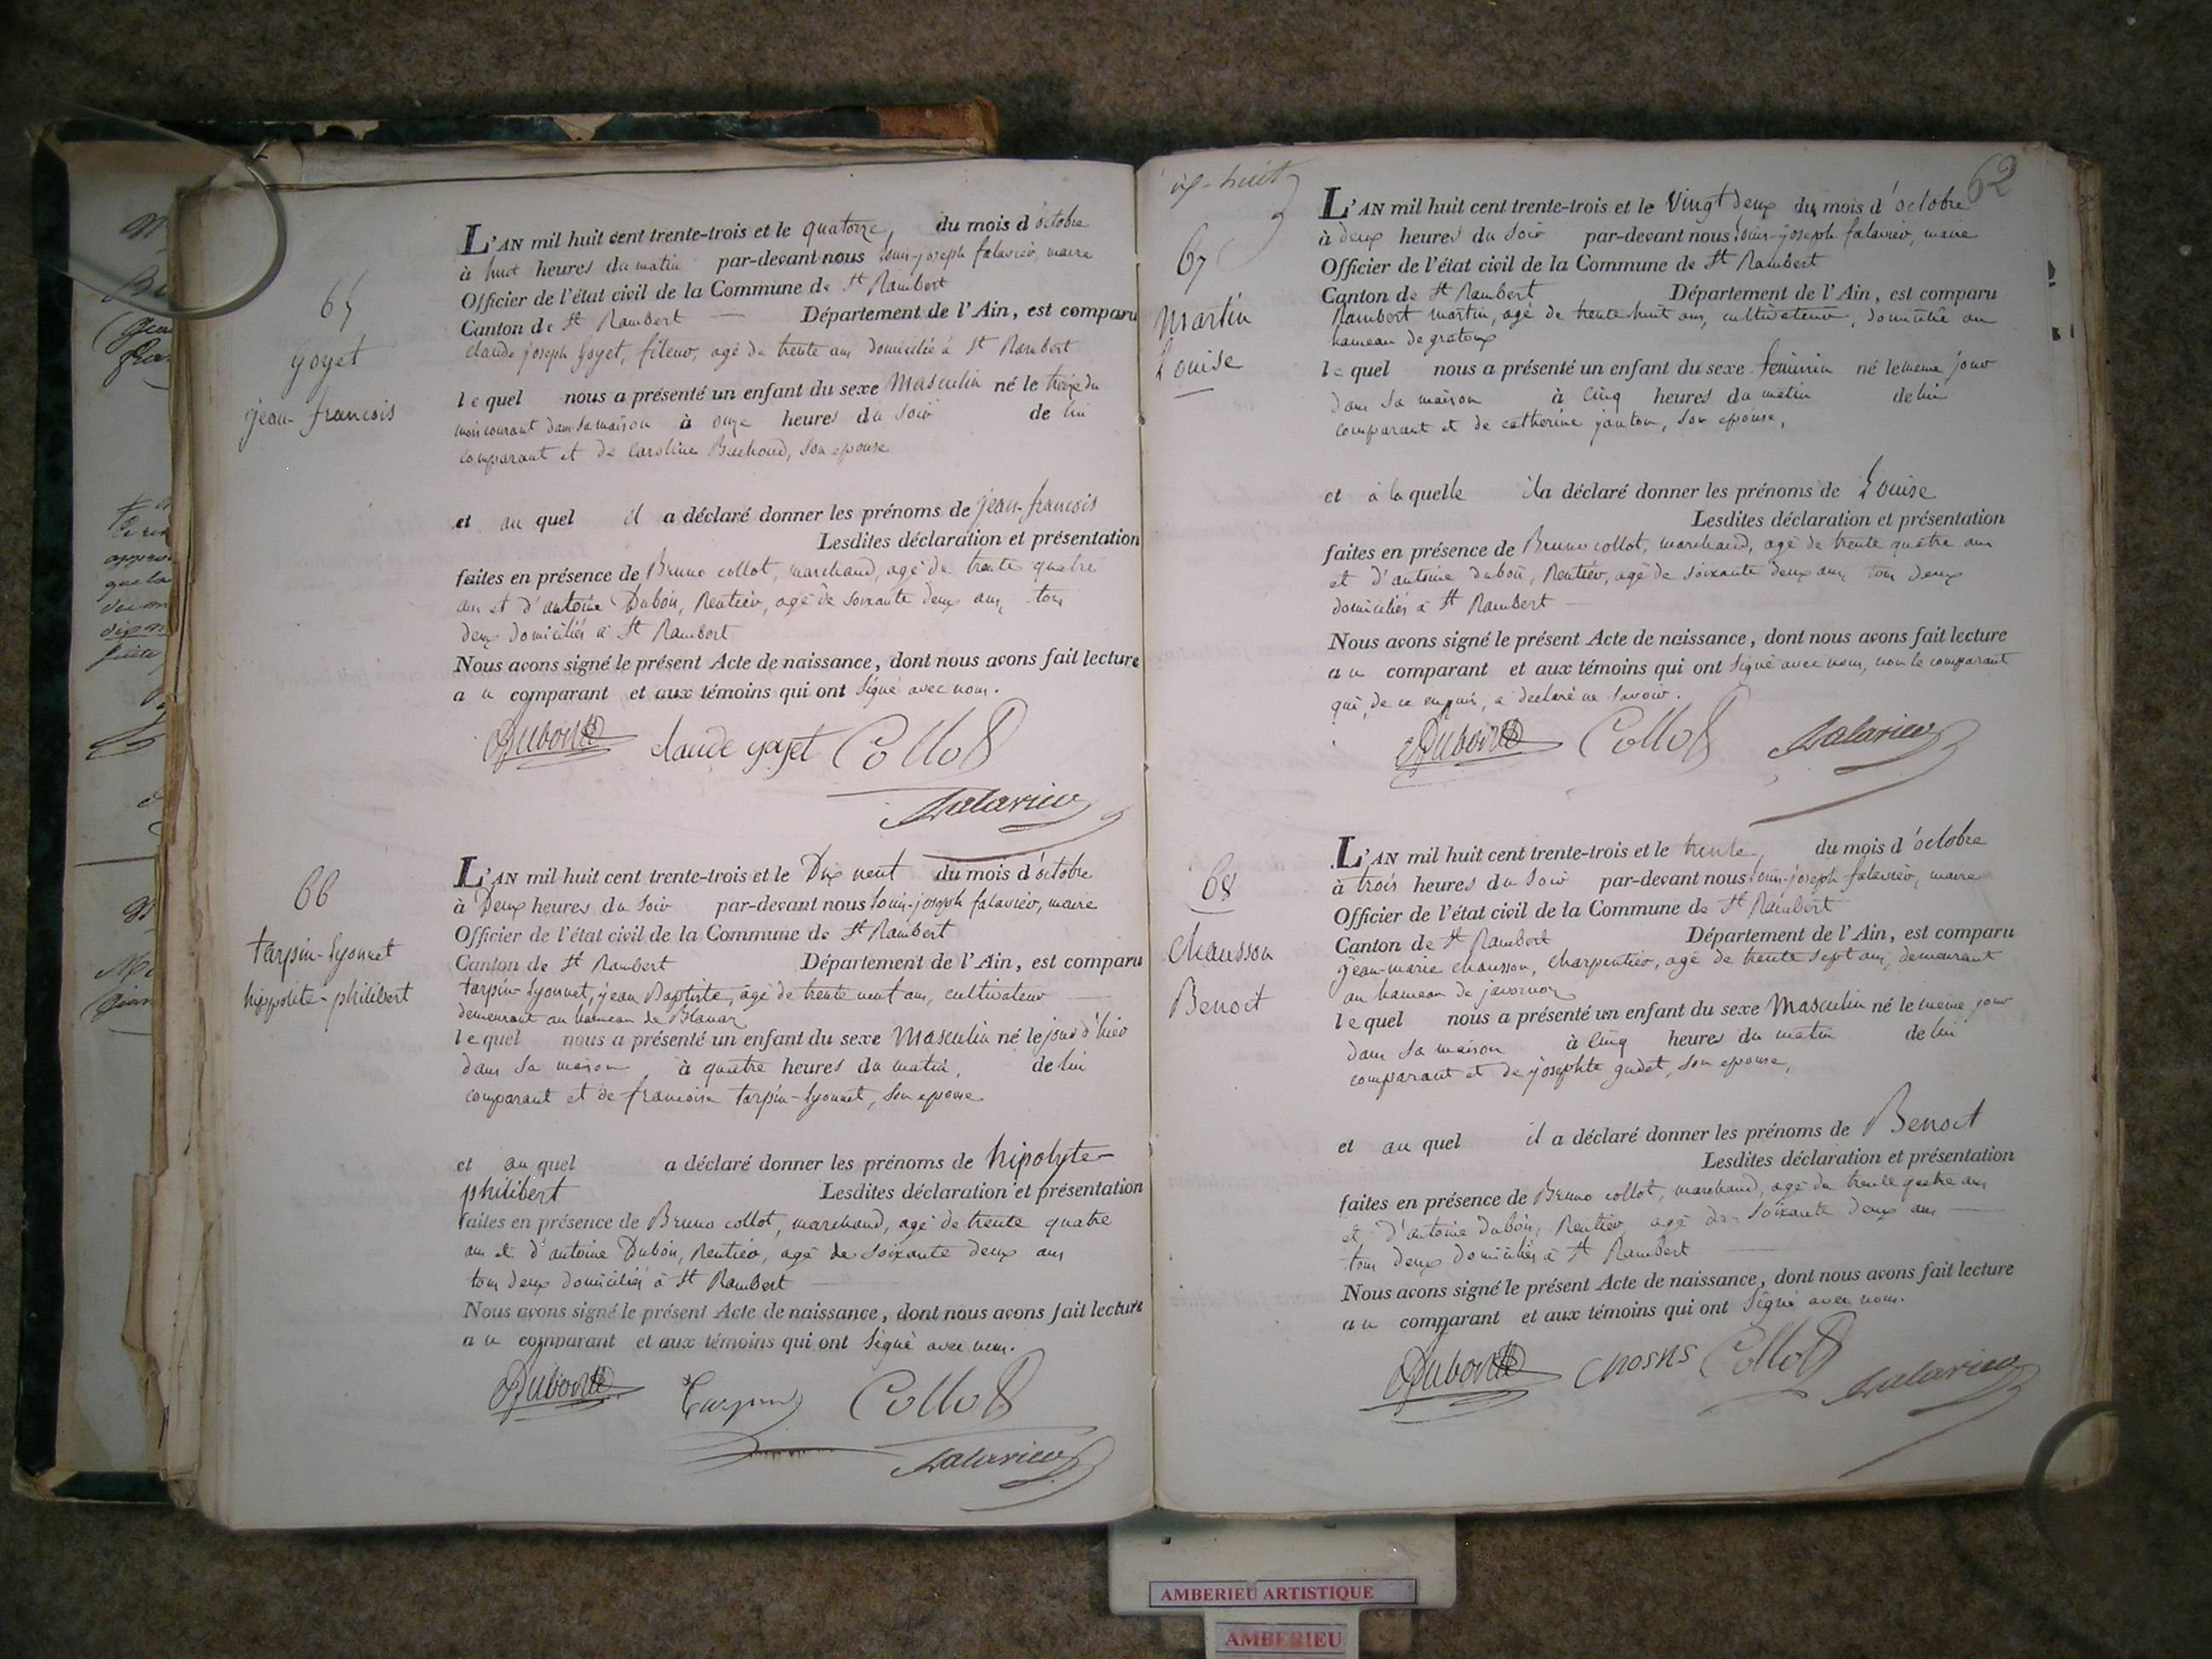 65
Goyet
jean-francois
L'AN mil huit cent trente-trois et le quatorze, du mois d'octobre
à huit heures du matin par-devant nous louis-joseph falavier, maire
Officier de l'état civil de la Commune de St Rambert
Canton de St Rambert — Département de l'Ain, est comparu
claude joseph Goyet, fileur, agé de trente ans domicilié à St Rambert
lequel nous a présenté un enfant du sexe Masculin né le treize du
mois courant dans sa maison à onze heures du soir de lui
comparant et de Caroline Buchoud, son epouse
et au quel il a déclaré donner les prénoms de jean-francois
Lesdites déclaration et présentation
faites en présence de Bruno collot, marchand, agé de trente quatre
ans et d'antoine Dubois, Rentier, agé de soixante deux ans, tous
deux domiciliés à St Rambert
Nous avons signé le présent Acte de naissance, dont nous avons fait lecture
au comparant et aux témoins qui ont signé avec nous.
Dubois claude goyet Collot
falavier
66
tarpin-lyonnet
hippolite-philibert
L'AN mil huit cent trente-trois et le Dix neuf du mois d'octobre
à Deux heures du soir par-devant nous louis-joseph falavier, maire
Officier de l'état civil de la Commune de St Rambert
Canton de St Rambert Département de l'Ain, est comparu
tarpin-lyonnet, jean Baptiste, agé de trente neuf ans, cultivateur
demeurant au hameau de Blanaz
lequel nous a présenté un enfant du sexe Masculin né le jour d'hier
dans sa maison, à quatre heures du matin, de lui
comparant et de francoise tarpin-lyonnet, son epouse
et au quel a déclaré donner les prénoms de hipolyte-
philibert Lesdites déclaration et présentation
faites en présence de Bruno collot, marchand, agé de trente quatre
ans et d'antoine Dubois, Rentier, agé de soixante deux ans
tous deux domiciliés à St Rambert
Nous avons signé le présent Acte de naissance, dont nous avons fait lecture
au comparant et aux témoins qui ont signé avec nous.
Dubois Tarpin Collot
falavier
62
67
Martin
Louise
L'AN mil huit cent trente-trois et le Vingt deux du mois d'octobre
à deux heures du soir par-devant nous louis-joseph falavier, maire
Officier de l'état civil de la Commune de St Rambert
Canton de St Rambert Département de l'Ain, est comparu
Rambert martin, agé de trente huit ans, cultivateur, domicilié au
hameau de gratoux
lequel nous a présenté un enfant du sexe feminin né le meme jour
dans sa maison à Cinq heures du matin de lui
comparant et de catherine janton, son epouse,
et à la quelle il a déclaré donner les prénoms de Louise
Lesdites déclaration et présentation
faites en présence de Bruno collot, marchand, agé de trente quatre ans
et d'antoine dubois, Rentier, agé de soixante deux ans, tous deux
domiciliés à St Rambert
Nous avons signé le présent Acte de naissance, dont nous avons fait lecture
au comparant et aux témoins qui ont signé avec nous, non le comparant
qui, de ce enquis, a declaré ne savoir.
Dubois Collot falavier
68
Chausson
Benoit
L'AN mil huit cent trente-trois et le trente, du mois d'octobre
à trois heures du soir par-devant nous louis-joseph falavier, maire
Officier de l'état civil de la Commune de St Rambert
Canton de St Rambert Département de l'Ain, est comparu
jean-marie chausson, charpentier, agé de trente sept ans, demeurant
au hameau de javornoz
lequel nous a présenté un enfant du sexe Masculin né le meme jour
dans sa maison à Cinq heures du matin de lui
comparant et de josephte gudet, son epouse,
et au quel il a déclaré donner les prénoms de Benoit
Lesdites déclaration et présentation
faites en présence de Bruno collot, marchand, agé de trente quatre ans
et d'antoine dubois, Rentier, agé de soixante deux ans
tous deux domiciliés à St Rambert
Nous avons signé le présent Acte de naissance, dont nous avons fait lecture
au comparant et aux témoins qui ont signé avec nous.
Dubois chosns Collot falavier
AMBERIEU ARTISTIQUE
AMBERIEU